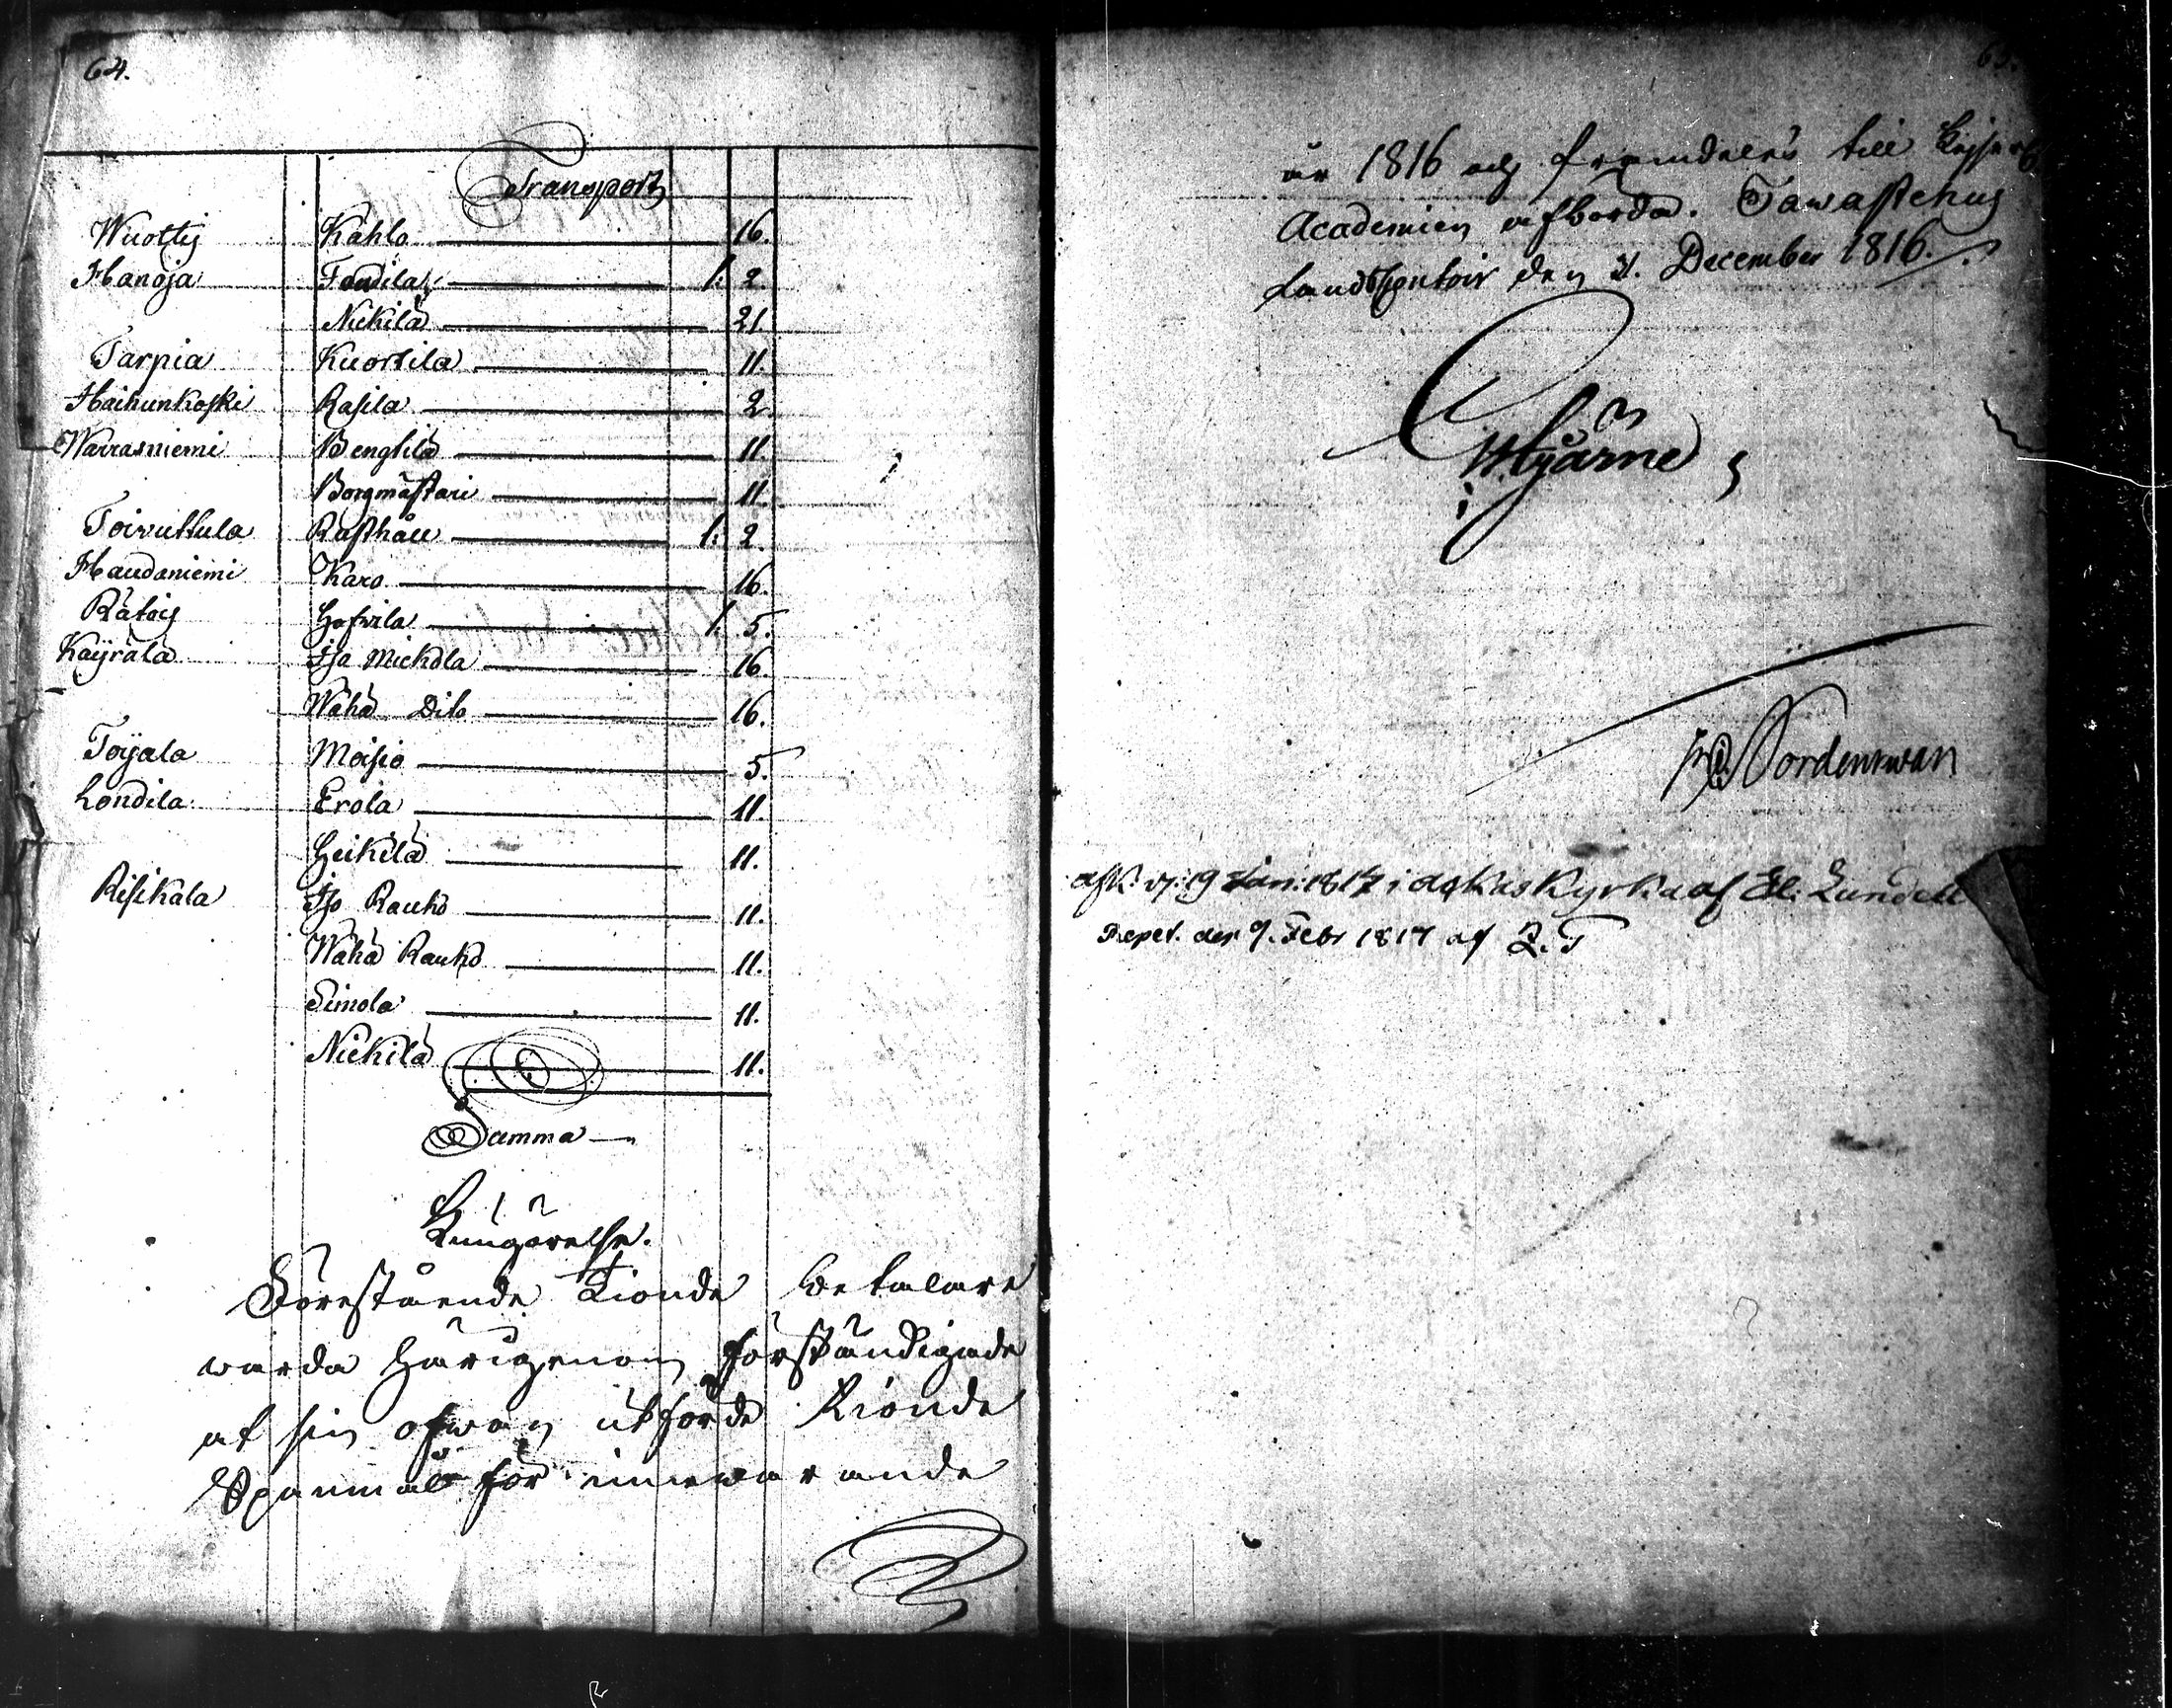 64.
Transport
Wuottis Kahlo 16.
Hanoja Fordila 1: 2.
Nickilä 21.
Tarpia Kuortila 11.
Haihunkoski Rasila 2
Warrasniemi Bengtilä 11
Borgmästari 11.
Toivuttula Rusthåll 1: 2.
Haudaniemi Karo 16.
Rätois Hofwila 1. 5.
Käyrälä Iso Mickola 16.
Wähä Dito 16.
Toijala Moisio 5.
Londila Erola 11.
Heikilä 11.
Risikala Iso Rauko 11.
Wähä Rauko 11.
Simola 11.
Nickilä 11.
Summa
Kungörelse.
Förestående Tionde betalare
warda härigenom förständigade
at sin ofwan utförde Tionde
Spanmål för innewarande
65.
år 1816 och framdeles till Kejserl.
Academien afbörda. Tawastehus
Landskontoir den 31. December 1816.
Hjärne
Nordenswan
1817 i Akkas Kyrka af El. Lundell
Repet. den 9. Febr 1817 af